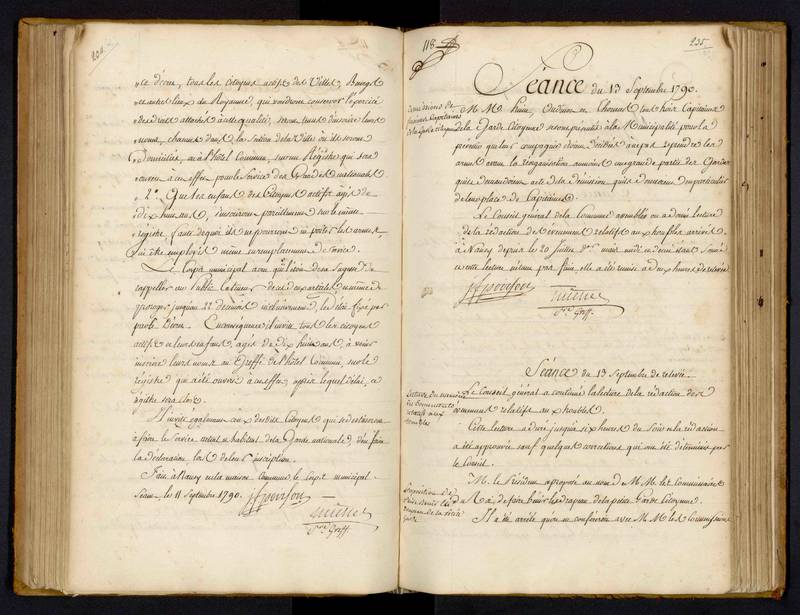 204
"ce décrit, tous les Citoyens actifs des Villes, Bourgs
"et autres lieux du Royaume, qui voudront conserver l'exercice
"des droits attachés à cette qualité, seront tenus d'inscrire leurs
"noms, chacun dans la section de la Ville où ils seront
"Domiciliés, ou à l'hôtel Commun, sur un Régistre qui sera
"ouvert à cet effet pour le Service des Gardes nationales
"2.° Que les enfans des Citoyens actifs agés de
"dix huit ans, s'inscriront pareillement sur le même
"registre, faute de quoi ils ne pourront ni porter les armes
"ni être employés même en remplacement de service.
Le Corps municipal a cru qu'il étoit de sa sagesse de
rappeller au Public la teneur de ces deux articles
jusqu'au 22 du mois inclusivement, le délai fixé par
En conséquence il invite tous les citoyens
actifs et leurs enfans, agés de dix huit ans, à venir
inscrire leurs noms au Greffe de l'hôtel Commun, sur le
régistre qui a été ouvert à cet effet, après lequel délai, ce
régistre sera clos.
Il invite également ceux desdits Citoyens qui se destineront
à faire le service actuel et habituel de la Garde nationale, d'en faire
la déclaration lors de leur inscription.
Fait à Nancy en la maison Commune, le Corps municipal
Séant, le 11 Septembre 1790.
Greff.
118
235
Séance du 13 Septembre 1790.
Démissions de
plusieurs Capitaines
de la Garde citoyenne
M. M. et Chomel tous trois Capitaines
de la Garde Citoyenne se sont présentés à la Municipalité pour la
prévenir que leurs compagnies
armes avant la réorganisation
de leurs places de Capitaines.
Le Conseil général de la Commune assemblé on a donné lecture
de la rédaction des évenemens relatifs aux troubles arrivés
à Nancy depuis le 20 Juillet d.er mais midi et demi étant sonné
et cette lecture n'étant pas finie, elle a été remise à deux heures de relevée
Greff.
Séance du 13 Septembre de relevée.
Lecture du
relatif aux
troubles
Le Conseil général a continué la lecture de la rédaction des
évenemens relatifs aux troubles.
Cette lecture a duré jusqu'à six heures du Soir et la rédaction
a été approuvée sauf quelques corrections qui ont été déterminées par
le Conseil.
Proposition de
faire bénir les
drapeaux de la petite
Garde
M. le Président a proposé au nom de M. M. les Commissaires
du Roi, de faire bénir les drapeaux de la petite Garde Citoyenne.
Il a été arrêté qu'on en conféreroit avec M. M. les Commissaires